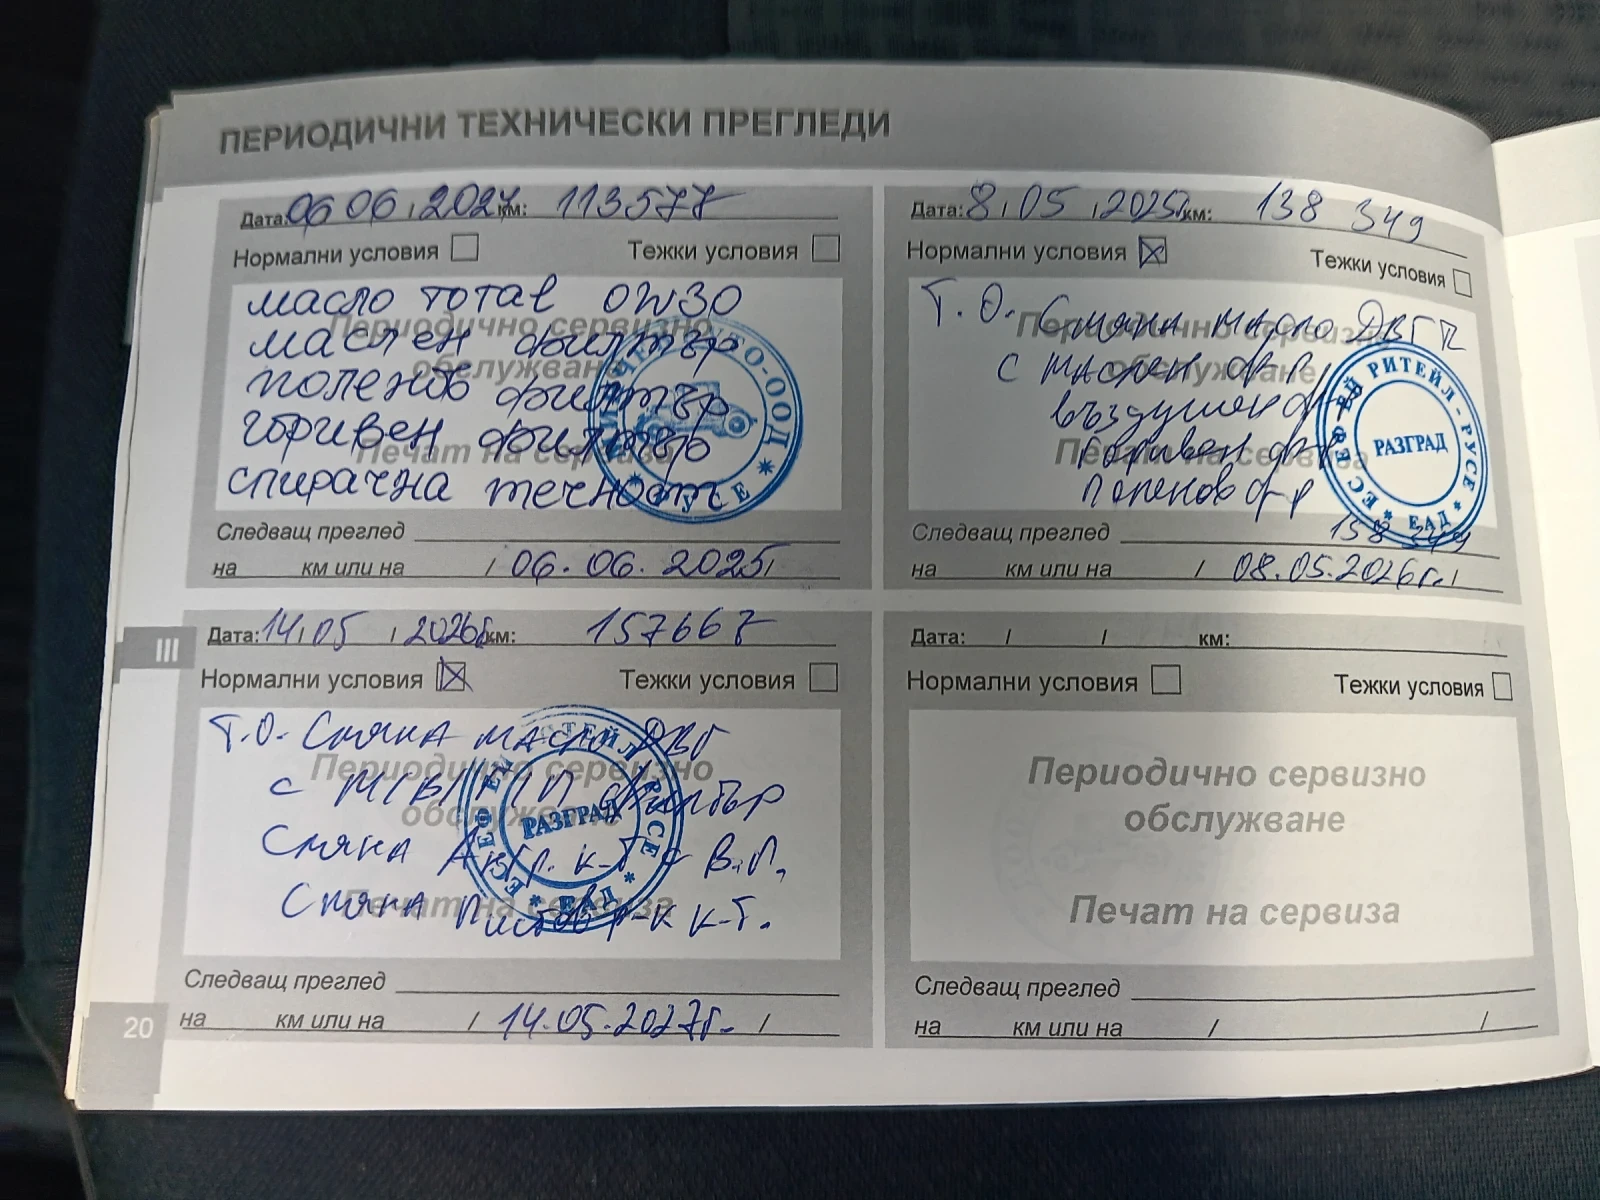 ПЕРИОДИЧНИ ТЕХНИЧЕСКИ ПРЕГЛЕДИ
Дата: 06 06 / 2024 км: 113577
Нормални условия Тежки условия
масло тотал 0W30
маслен филтър
поленов филтър
горивен филтър
спирачна течност
Периодично сервизно
обслужване
Печат на сервиза
АУТО-ООД
* РУСЕ *
Следващ преглед
на км или на / 06.06.2025 /
Дата: 8 / 05 / 2025г км: 138 349
Нормални условия Тежки условия
Т.О. Смяна масло ДВГ
с маслен ф-р
въздушен ф-р
горивен ф-р
поленов ф-р
Периодично сервизно
обслужване
Печат на сервиза
ЕЙ РИТЕЙЛ-РУСЕ
РАЗГРАД
* ЕАД *
Следващ преглед 158 349
на км или на / 08.05.2026г. /
III
Дата: 14 / 05 / 2026г км: 157667
Нормални условия Тежки условия
Т.О. Смяна масло ДВГ
с М/В/Г/П филтър
Смяна Ангр. к-т с В.П.
Смяна к-т.
Периодично сервизно
обслужване
Печат на сервиза
РАЗГРАД
* ЕАД *
Следващ преглед
на км или на / 14.05.2027г. /
Дата: / / км:
Нормални условия Тежки условия
Периодично сервизно
обслужване
Печат на сервиза
Следващ преглед
на км или на / /
20